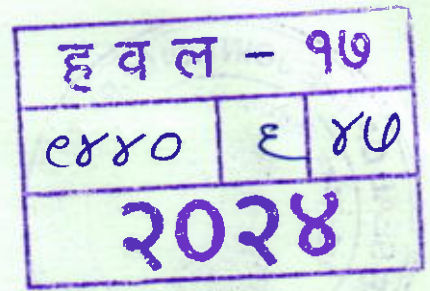 हवल - १७
९४४० ६ ४७
२०२४